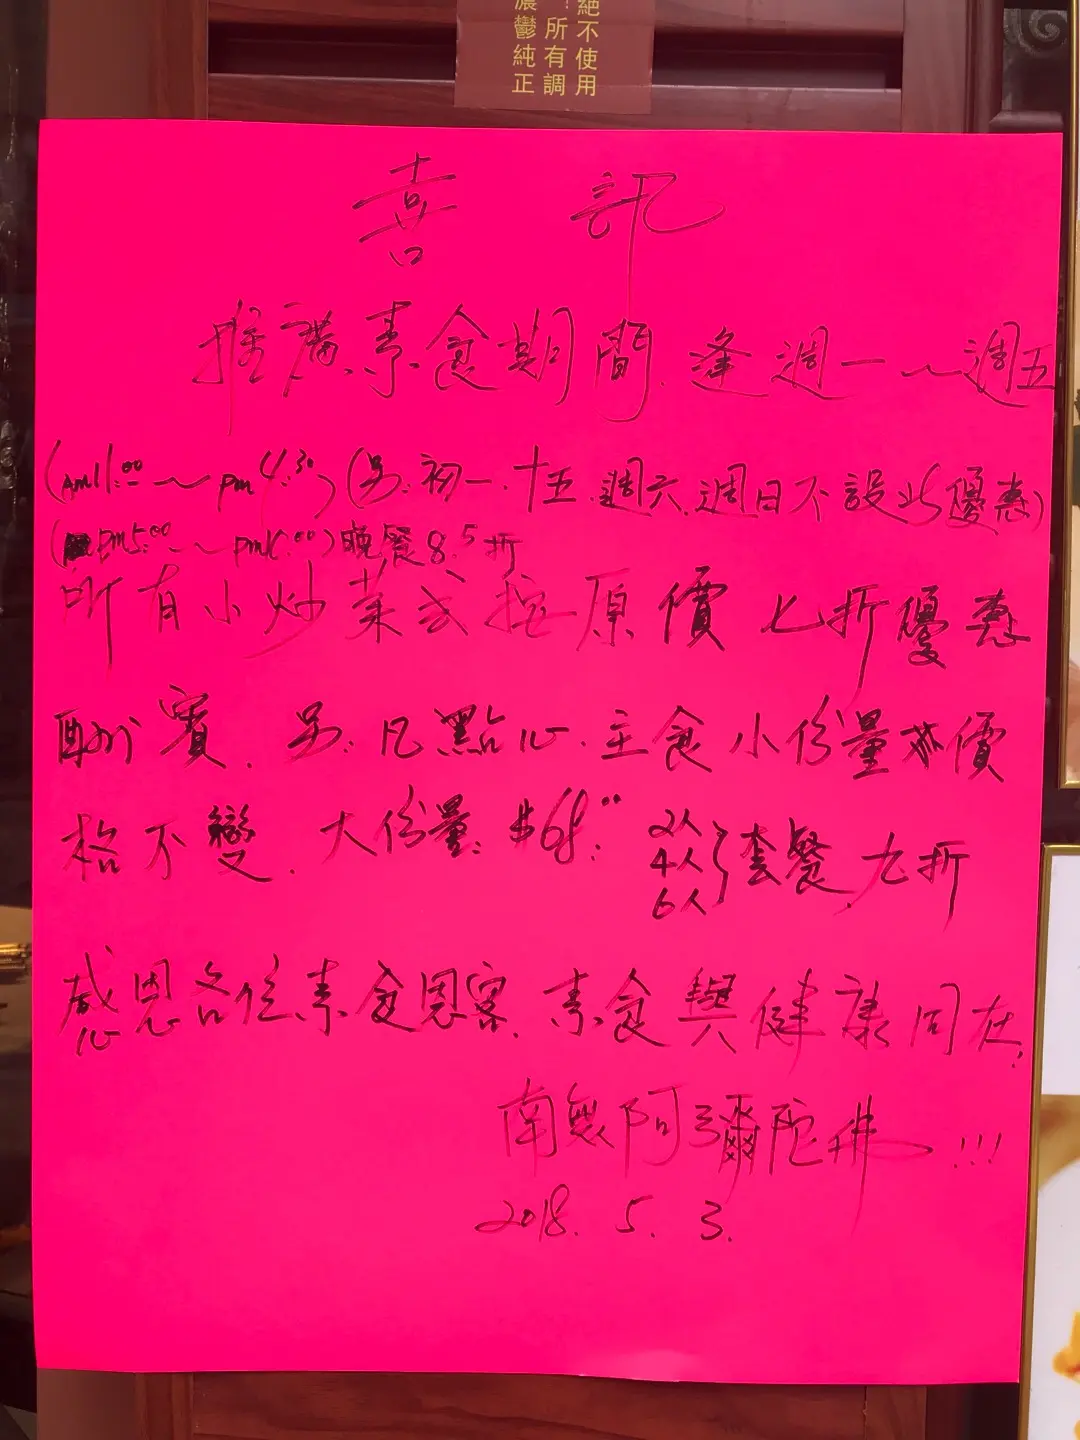 絕不使用
！所有調
濃鬱純正
喜訊
推廣素食期間.逢週一～週五
(Am11:00～pm4:30)(另:初一.十五.週六.週日不設此優惠)
(pm5:00～pm10:00)晚餐8.5折
所有小炒菜式按原價七折優惠
酬賓.另:凡點心.主食小份量花價
格不變.大份量:$68:00 2人 4人 6人}套餐.九折
感恩各位素食恩客.素食與健康同在.
南無阿彌陀佛!!!
2018.5.3.